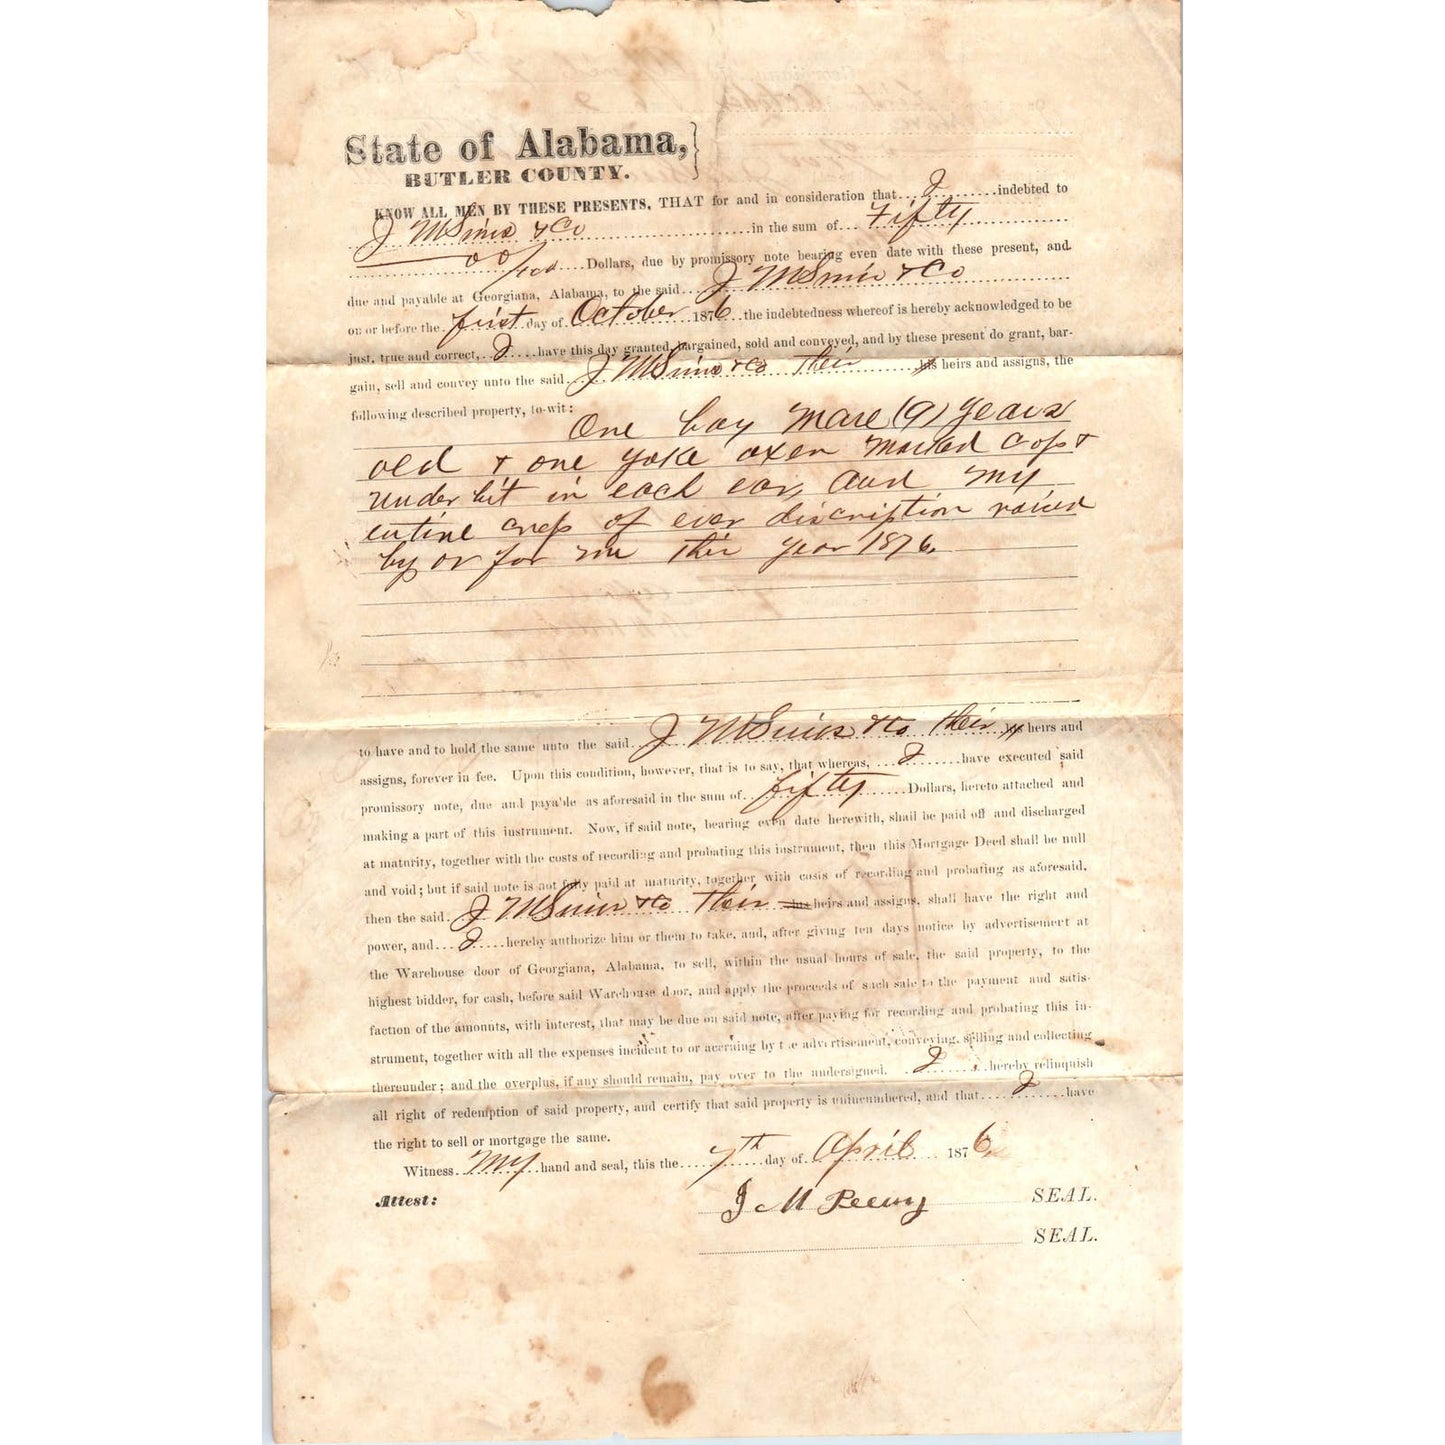 State of Alabama,
BUTLER COUNTY.
KNOW ALL MEN BY THESE PRESENTS, THAT for and in consideration that I indebted to
J M Sims & Co in the sum of Fifty
00/100 Dollars, due by promissory note bearing even date with these present, and
due and payable at Georgiana, Alabama, to the said J M Sims & Co
on or before the first day of October 1876 the indebtedness whereof is hereby acknowledged to be
just, true and correct, I have this day granted, bargained, sold and conveyed, and by these present do grant, bar-
gain, sell and convey unto the said J M Sims & Co their his heirs and assigns, the
following described property, to-wit:
One bay Mare (9) years
old & one yoke oxen marked crop &
under bit in each ear, and my
entire crop of ever discription raised
by or for me this year 1876.
to have and to hold the same unto the said J M Sims & Co their his heirs and
assigns, forever in fee. Upon this condition, however, that is to say, that whereas, I have executed said
promissory note, due and payable as aforesaid in the sum of fifty Dollars, hereto attached and
making a part of this instrument. Now, if said note, bearing even date herewith, shall be paid off and discharged
at maturity, together with the costs of recording and probating this instrument, then this Mortgage Deed shall be null
and void; but if said note is not fully paid at maturity, together with costs of recording and probating as aforesaid,
then the said J M Sims & Co their his heirs and assigns, shall have the right and
power, and I hereby authorize him or them to take, and, after giving ten days notice by advertisement at
the Warehouse door of Georgiana, Alabama, to sell, within the usual hours of sale, the said property, to the
highest bidder, for cash, before said Warehouse door, and apply the proceeds of such sale to the payment and satis-
faction of the amounts, with interest, that may be due on said note, after paying for recording and probating this in-
strument, together with all the expenses incident to or accruing by the advertisement, conveying, selling and collecting
thereunder; and the overplus, if any should remain, pay over to the undersigned. I hereby relinquish
all right of redemption of said property, and certify that said property is unincumbered, and that I have
the right to sell or mortgage the same.
Witness My hand and seal, this the 7th day of April 1876
Attest:
J M Peeuy SEAL.
SEAL.